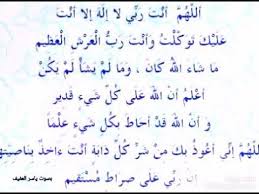 اللَّهُمَّ أَنْتَ رَبِّي لا إِلَهَ إِلا أَنْتَ
عَلَيْكَ تَوَكَّلْتُ وَأَنْتَ رَبُّ الْعَرْشِ الْعَظِيمِ
مَا شَاءَ اللهُ كَانَ ، وَمَا لَمْ يَشَأْ لَمْ يَكُنْ
أَعْلَمُ أَنَّ اللهَ عَلَى كُلِّ شَيْءٍ قَدِيرٍ
وَ أَنَّ اللهَ قَدْ أَحَاطَ بِكُلِّ شَيْءٍ عِلْمًا
اللَّهُمَّ إِنِّي أَعُوذُ بِكَ مِنْ شَرِّ كُلِّ دَابَّةٍ أَنْتَ ءَاخِذٌ بِنَاصِيَتِهَا
إِنَّ رَبِّي عَلَى صِرَاطٍ مُسْتَقِيمٍ
بصوت ياسر العفيف